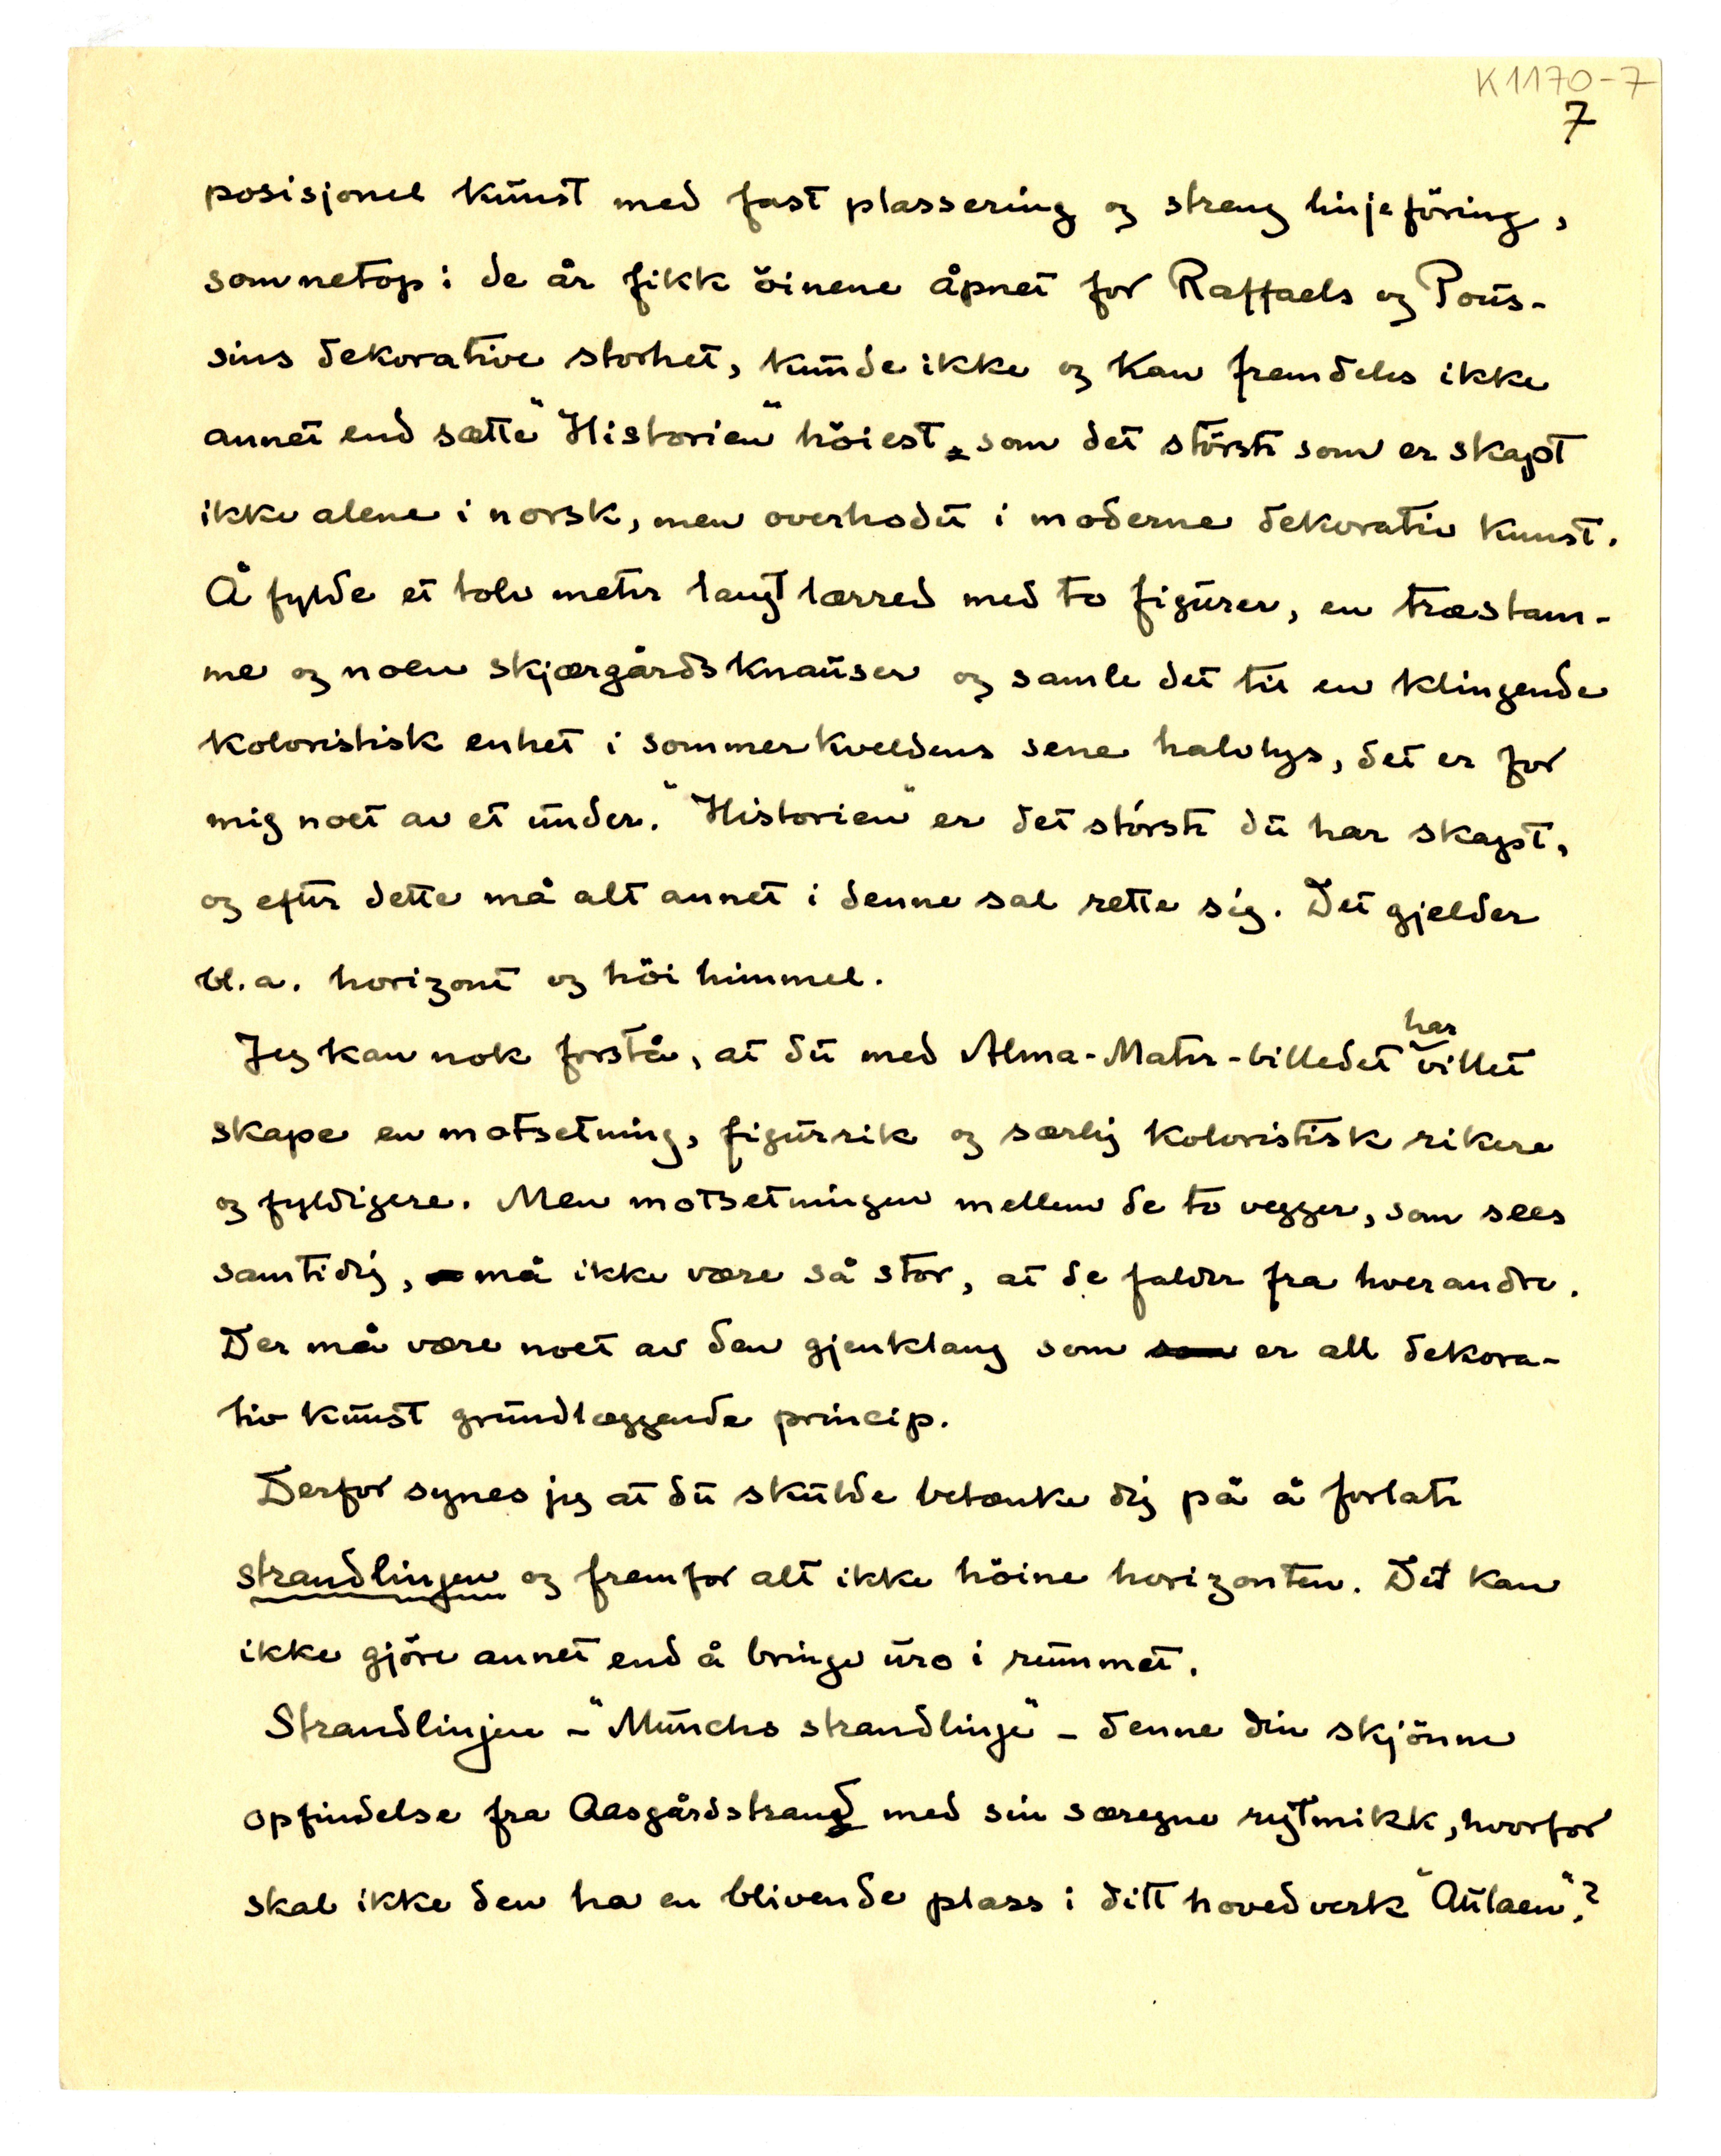 K1170-7
7
posisjonel kunst med fast plassering og streng linjeföring,
som netop i de år fikk öinene åpnet for Raffaels og Pous-
sins dekorative storhet, kunde ikke og kan fremdeles ikke
annet end sætte "Historien" höiest, som det störste som er skapt
ikke alene i norsk, men overhodet i moderne dekorativ kunst.
Å fylde et tolv meter langt lærred med to figurer, en træstam-
me og noen skjærgårdsknauser og samle det til en klingende
koloristisk enhet i sommerkveldens sene halvlys, det er for
mig noet av et under. "Historien" er det störste du har skapt,
og efter dette må alt annet i denne sal rette sig. Det gjelder
bl.a. horizont og höi himmel.
har
Jeg kan nok forstå, at du med Alma-Mater-billedet villet
skape en motsetning, figurrik og særlig koloristisk rikere
og fyldigere. Men motsetningen mellem de to vegger, som sees
samtidig, må ikke være så stor, at de falder fra hverandre.
Der må være noet av den gjenklang som som er all dekora-
tiv kunst grundlæggende princip.
Derfor synes jeg at du skulde betænke dig på å forlate
strandlinjen og fremfor alt ikke höine horizonten. Det kan
ikke gjöre annet end å bringe uro i rummet.
Strandlinjen - "Munchs strandlinje" - denne din skjönne
opfindelse fra Aasgårdstrand med sin særegne rytmikk, hvorfor
skal ikke den ha en blivende plass i ditt hovedverk "Aulaen".?